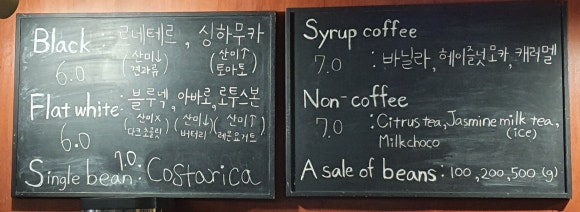 Black : 르네테르, 싱하무카
6.0 (산미↓ 견과류) (산미↑ 토마토)
Flat white : 블루넥, 아바로, 로투스본
6.0 (산미X 다크초콜릿) (산미↓ 버터리) (산미↑ 레몬요거트)
Single bean 7.0 : Costarica
Syrup coffee
7.0 : 바닐라, 헤이즐넛, 모카, 캐러멜
Non-coffee
7.0 : Citrus tea, Jasmine milk tea, (ice)
Milk choco
A sale of beans : 100, 200, 500 (g)